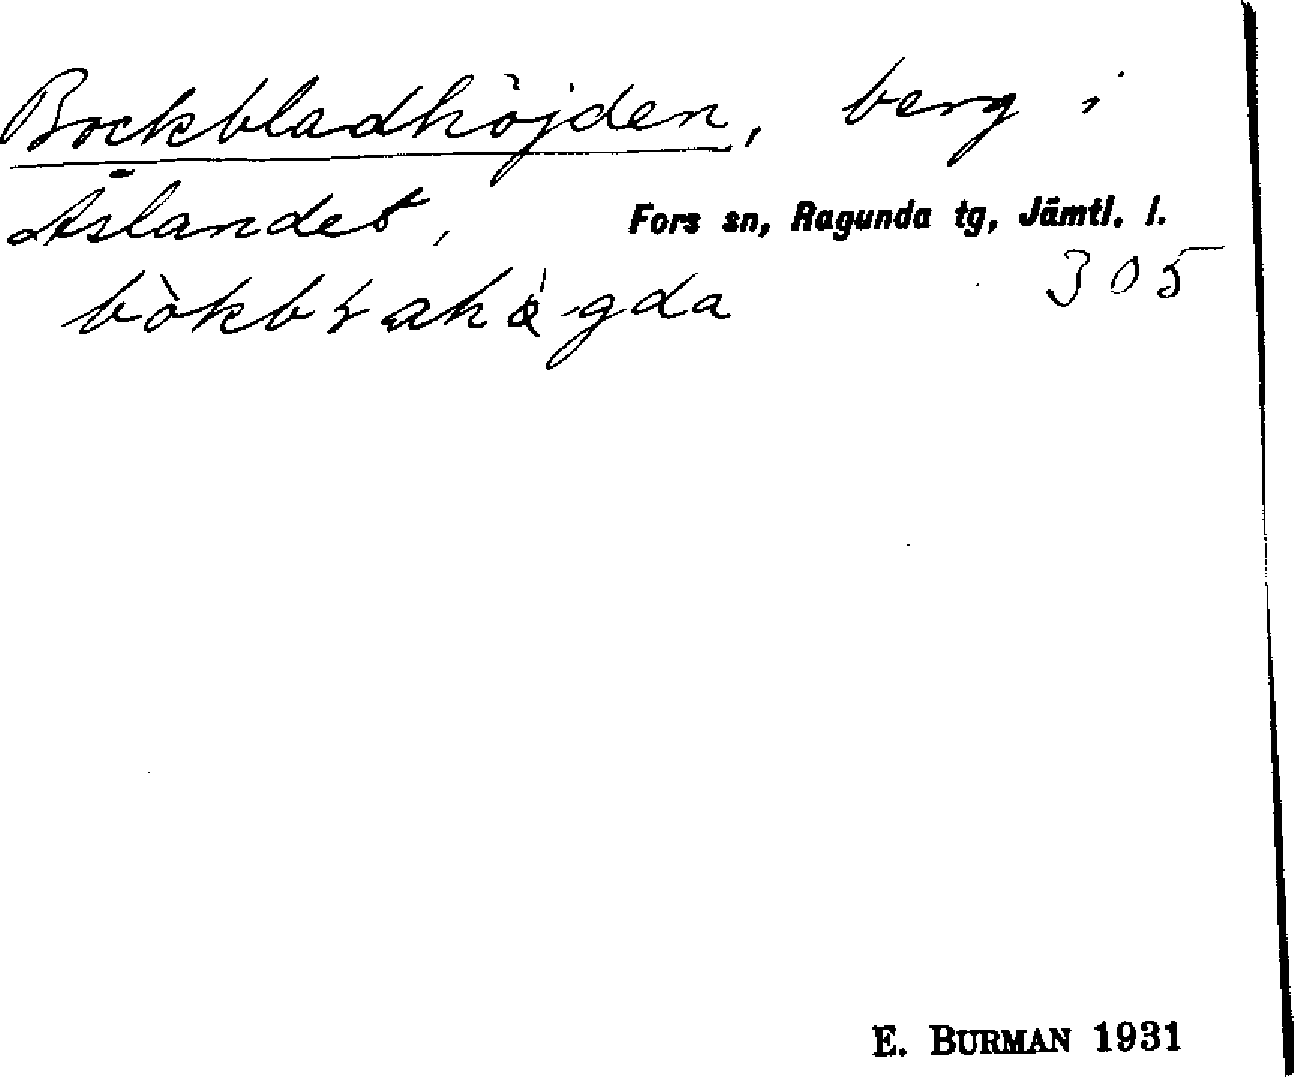 Bockbladhöjden, berg i
Åslandet, Fors sn, Ragunda tg, Jämtl. l.
305
E. BURMAN 1931